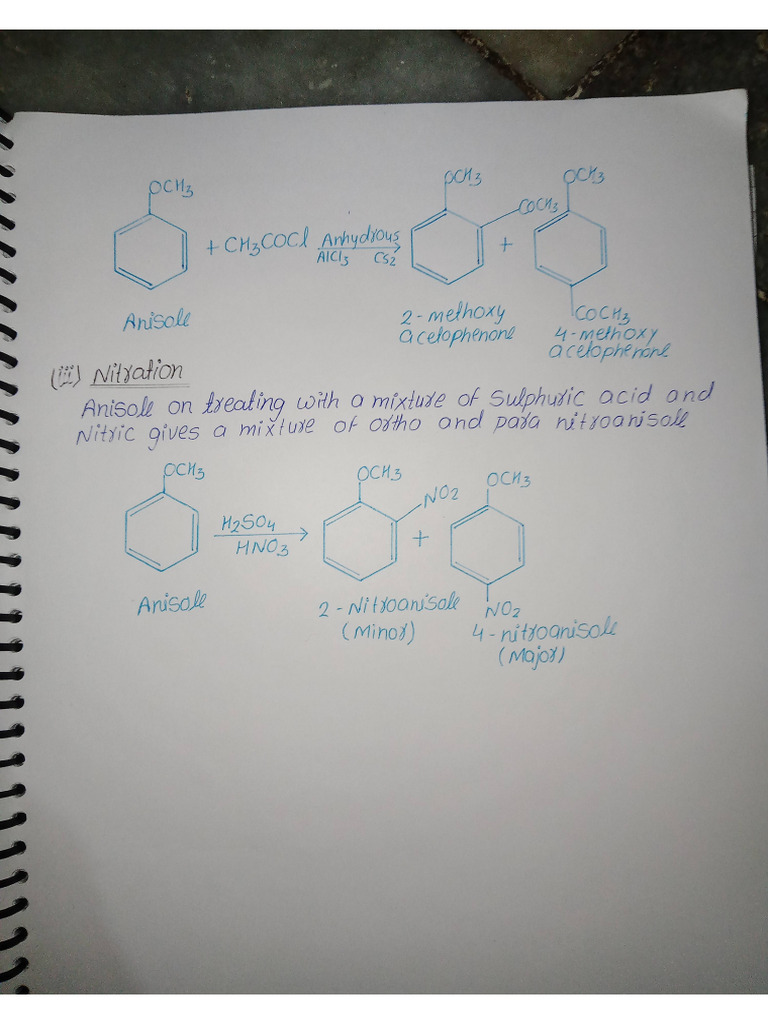 OCH3 OCH3 OCH3
COCH3
+ CH3COCl Anhydrous +
AlCl3 CS2
Anisole 2-methoxy COCH3
acetophenone 4-methoxy
acetophenone
(iii) Nitration
Anisole on treating with a mixture of Sulphuric acid and
Nitric gives a mixture of ortho and para nitroanisole
OCH3 OCH3 OCH3
NO2
H2SO4 +
HNO3
Anisole 2-Nitroanisole NO2
(Minor) 4-nitroanisole
(Major)